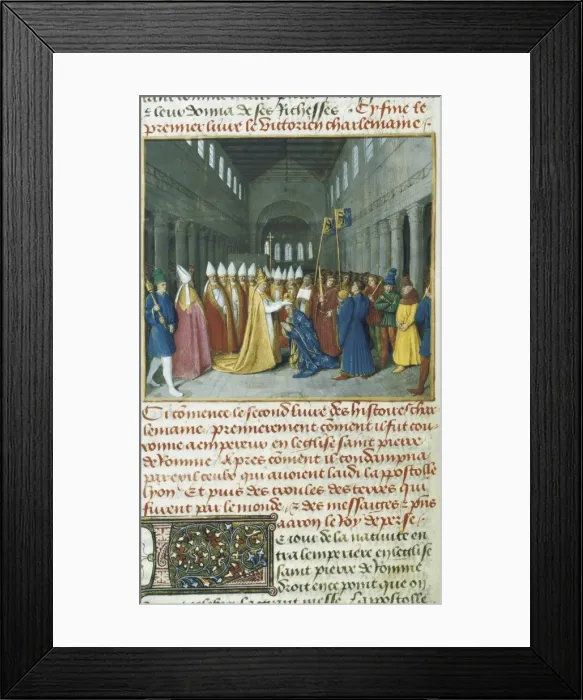 & leur donna de ses richesses . Cy fine le
premier livre le victorien charlemaine .
Ci cōmence le second livre des histoires char
lemaine premierement cōment il fut cou
ronne a empereur en leglise saint pierre
de Romme . Apres cōment il condampna
par exil ceulx qui avoient laidi lapostolle
lyon . Et puis des croules des terres qui
furent par le monde . & des messaiges &
aaron le Roy de perse .
Le iour de la nativite en
tra lemperiere en leglise
saint pierre de Romme
droit en ce point que on
la grant messe . lapostolle